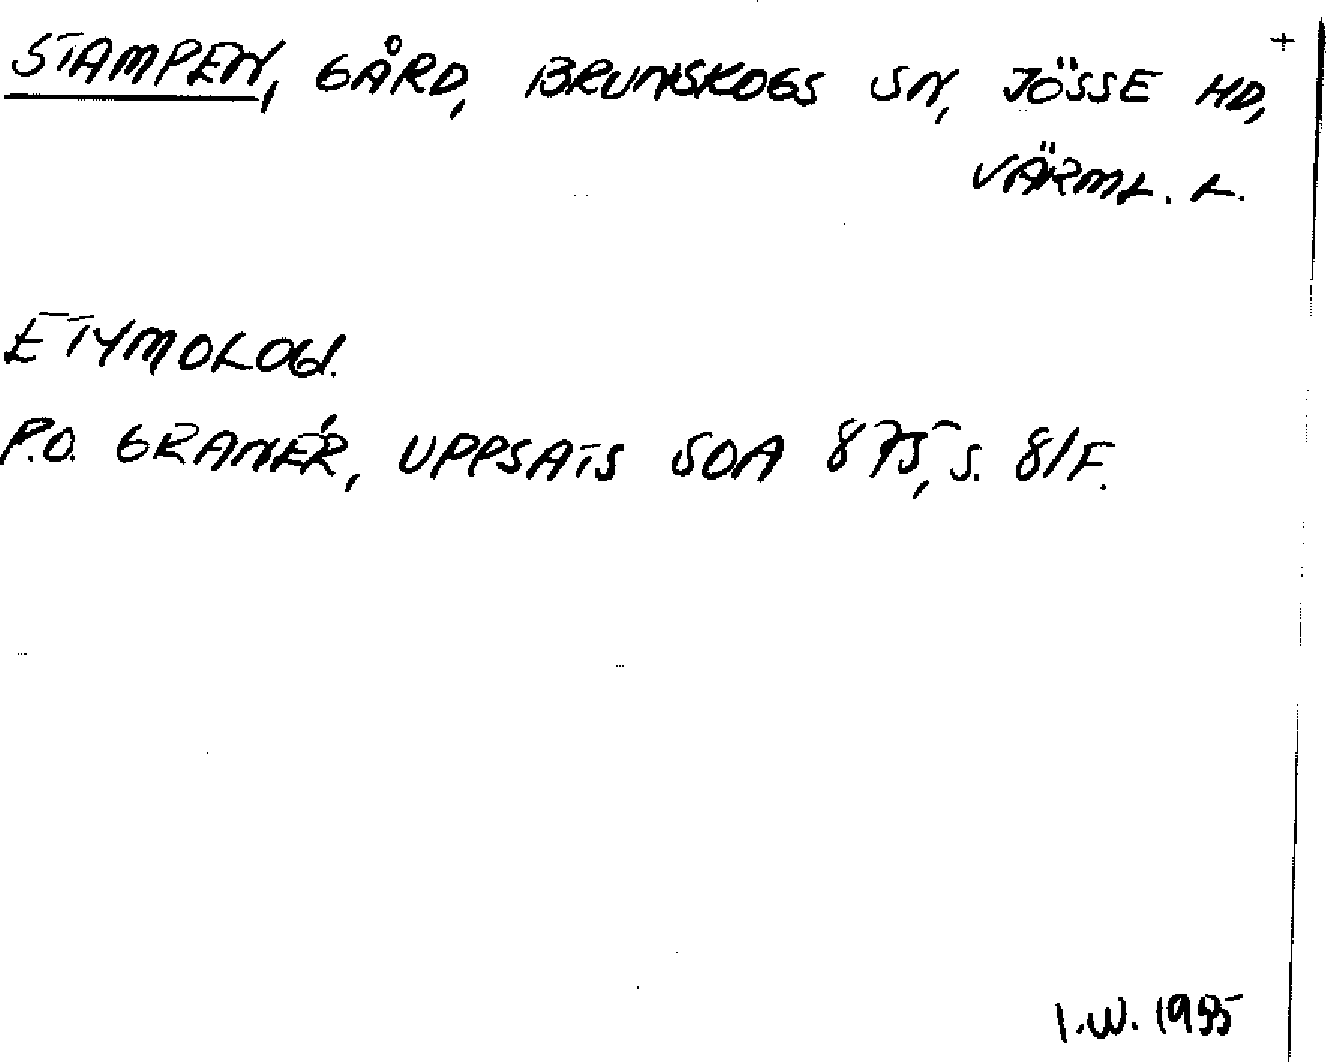 STAMPEN, GÅRD, BRUNSKOGS SN, JÖSSE HD, +
VÄRML. L.
ETYMOLOGI.
P.O. GRANÉR, UPPSATS SOA 875, S. 81F.
I.W. 1955